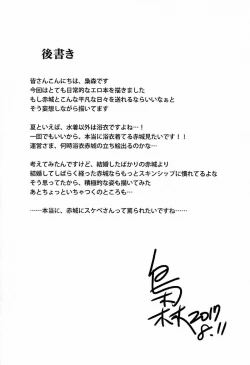 後書き
皆さんこんにちは、梟森です
今回はとても日常的なエロ本を描きました
もし赤城とこんな平凡な日々を送れるならいいなぁと
そう妄想しながら描いてます
夏といえば、水着以外は浴衣ですよね…！
一回でもいいから、本当に浴衣着てる赤城見たいです！！
運営さま、何時浴衣赤城の立ち絵出るのかな…
考えてみたんですけど、結婚したばかりの赤城より
結婚してしばらく経った赤城ならもっとスキンシップに慣れてるよな
そう思ってたから、積極的な姿も描いてみた
あとちょっといちゃつくのところも…
……本当に、赤城にスケベさんって罵られたいですね……
梟森 2017
8.11